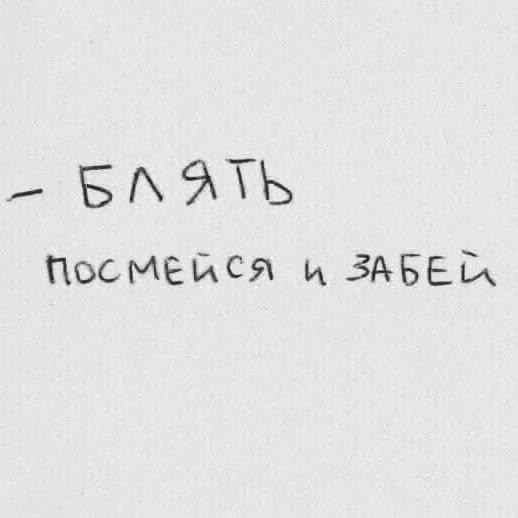 - БЛЯТЬ
ПОСМЕЙСЯ И ЗАБЕЙ